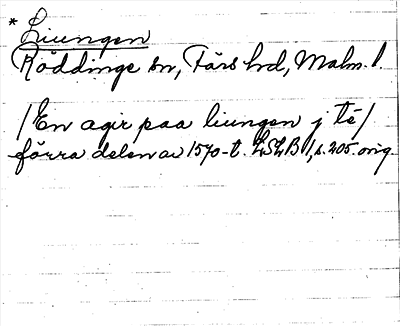 * Liungen
Röddinge sn, Färs hd, Malm. l.
/En agir paa liungen j té/
förra delen av 1570-t. LSLB 1, s. 205. orig.